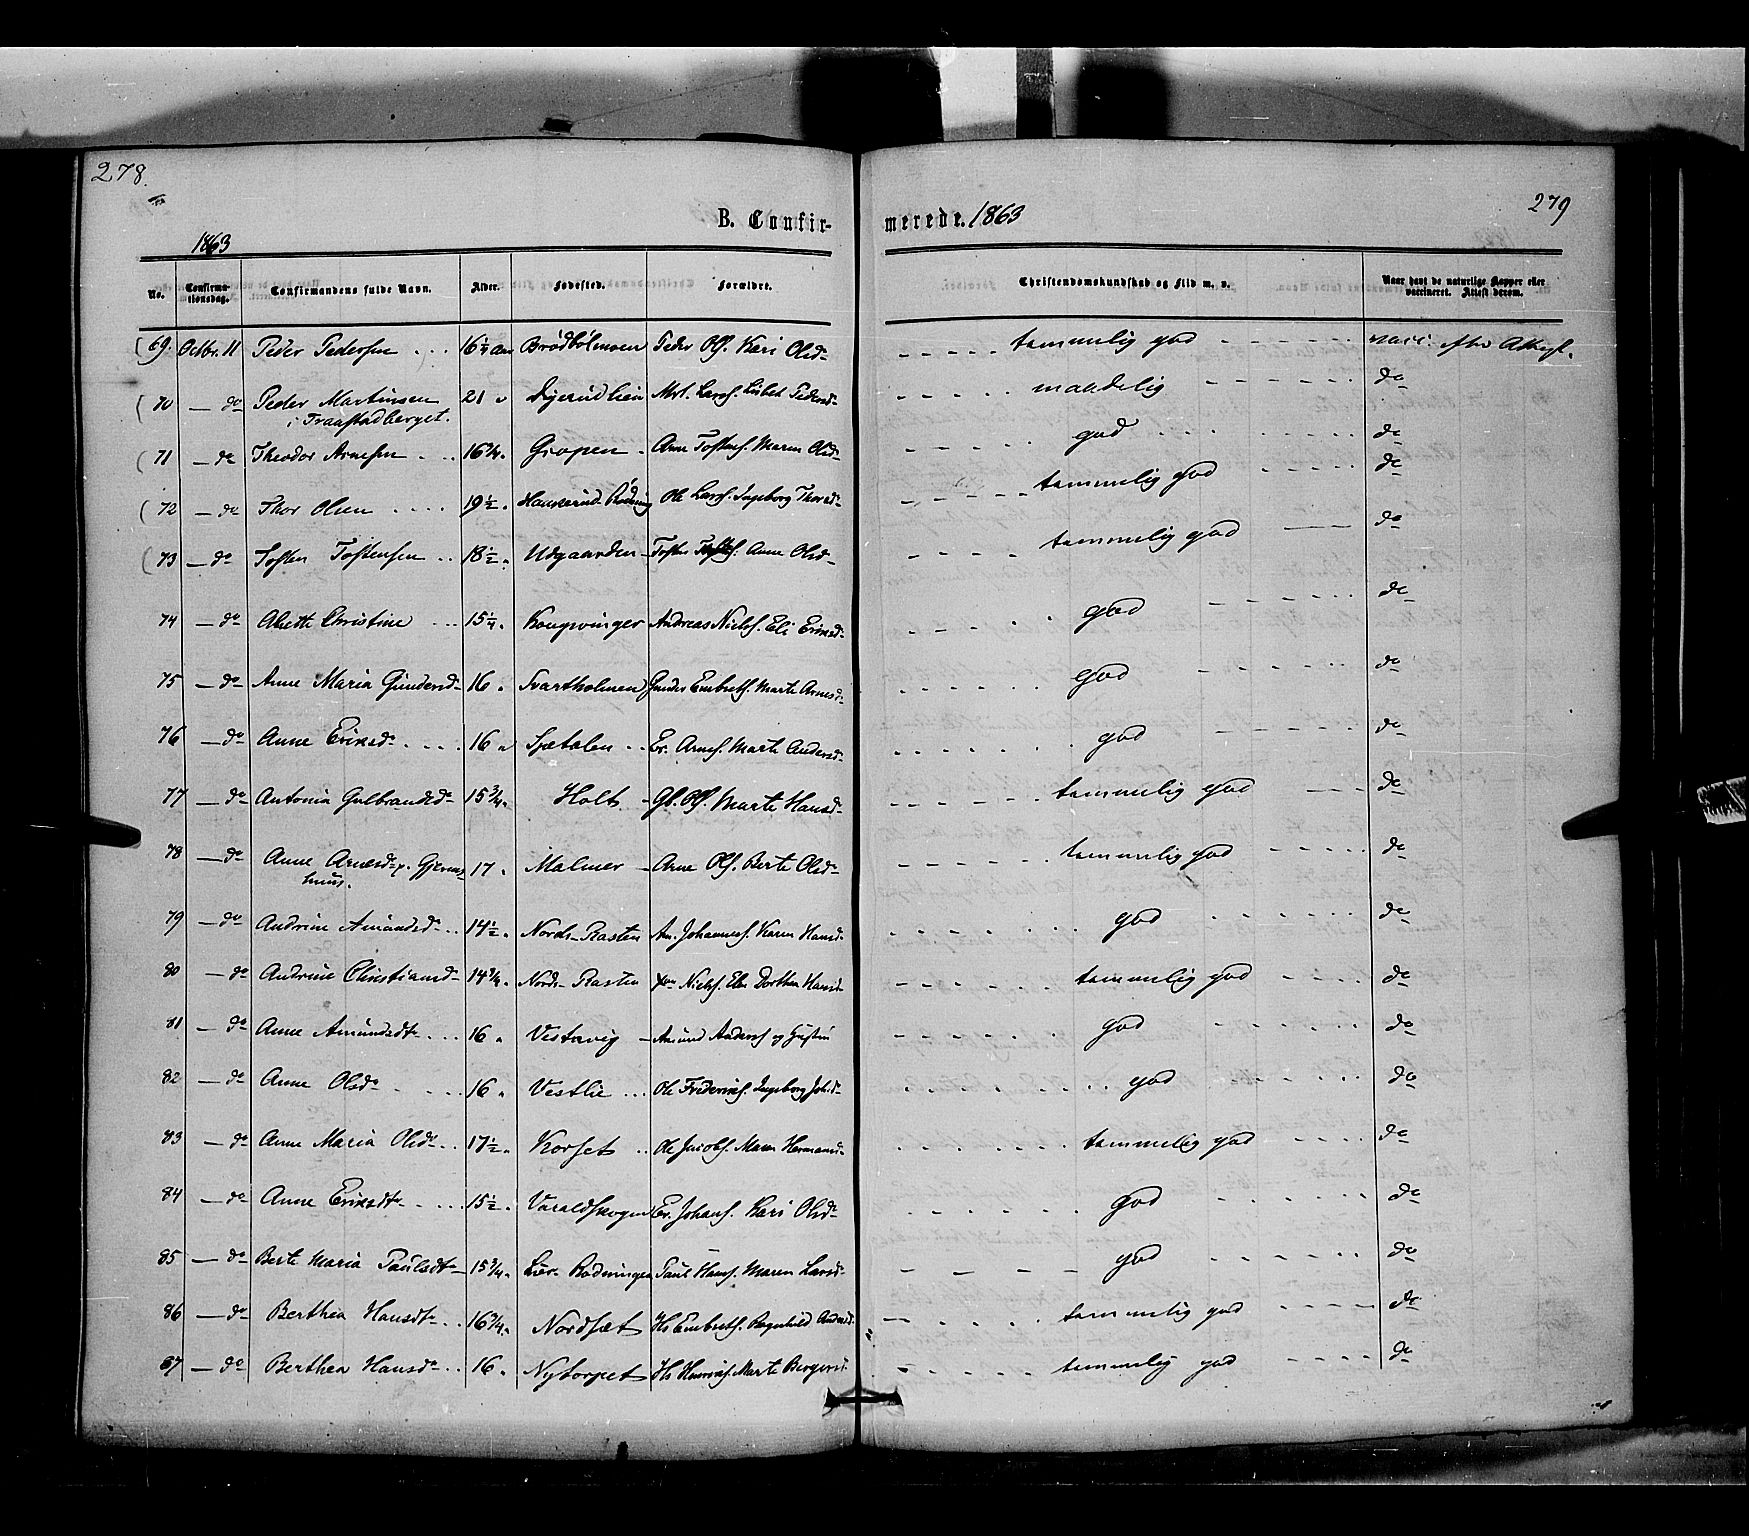 278.
279
B. Confir-
merede. 1863
1863
No. Confirma-tionsdag. Confirmandens fulde Navn. Alder. Fødested. Forældre. Christendomskundskab og Flid m. v. Naar havt de naturlige Kopper eller vaccineret. Attest derom.
69. Octbr. 11 Peder Pedersen 16 1/4 Aar Brødbølmoen Peder Ols. Kari Olsd. temmelig god vacc. efter Attest.
70 — do Peder Martinsen 21 " Dyrudlien Mrt. Larss. Lisbet Pedersd. maadelig do
i Fraastadberget.
71 — do Theodor Arnesen 16 3/4 " Gropen Arne Tostens. Maren Olsd. god do
72 — do Thor Olsen 19 1/2 " Ole Larss. Ingeborg Thorsd. temmelig god do
73 — do Tosten Tostensen 18 1/2 " Udgaarden Tosten Tostens. Anne Olsd. temmelig god do
74 — do Alette Christine 15 1/4 " Kongsvinger Andreas Niels. Eli Eriksd. god do
75 — do Anne Maria Gundersd. 16 " Svartholmen Gunder Embrets. Marte Arnesd. god do
76 — do Anne Eriksd. 16 " Sætalen Er. Arnes. Marte Andersd. god do
77 — do Antonia Gulbrandsd. 15 3/4 " Holt Gl. Ols. Marte Hansd. temmelig god do
78 — do Anne Arnesd. p. Gjerms- 17 " Malmer Arne Ols. Berte Olsd. temmelig god do
huus.
79 — do Andrine Amundsd. 14 1/2 " Nordr. Rasten Am. Johannes. Karen Hansd. god do
80 — do Andrine Christiansd. 14 3/4 " Nordr. Rasten Xan Niels. Elen Dorthea Hansd. temmelig god do
81 — do Anne Amundsdtr. 16 " Vestavig Amund Anders. og god do
82 — do Anne Olsdr. 16 " Vestlie Ole Frederiks. Ingeborg Joh.d. god do
83 — do Anne Maria Olsdr. 17 1/2 " Korset Ole Jacobs. Maren Hermansd. temmelig god do
84 — do Anne Eriksdtr. 15 1/2 " Varaldskogen Er. Johans. Kari Olsd. god do
85 — do Berte Maria Paulsdtr. 15 3/4 " Rødningen Paul Hans. Maren Larsd. god do
86 — do Berthea Hansdtr. 16 3/4 " Nordset Hs Embrets. Ragnhild Andersd. temmelig god do
87 — do Berthea Hansdr. 16 " Nytorpet Hs Henriks. Marte Bergersd. temmelig god do